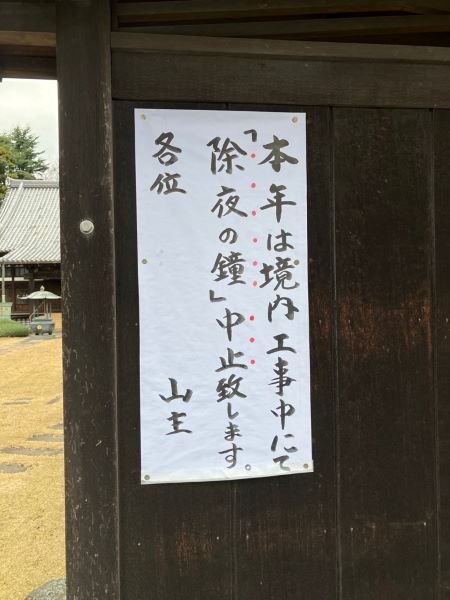 本年は境内工事中にて
「除夜の鐘」中止致します。
各位
山主